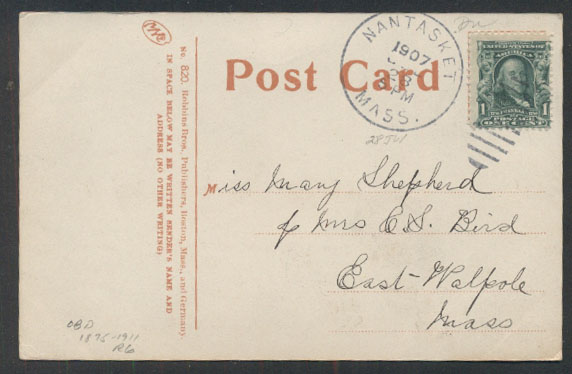 Post Card
NANTASKET
1907
PM
MASS.
UNITED STATES OF
1 1
POSTAGE
ONE CENT
28 JUL
Miss Mary Shepherd
℅ Mrs E.S. Bird
East Walpole
Mass
No. 820. Robbins Bros. Publishers, Boston, Mass., and Germany.
IN SPACE BELOW MAY BE WRITTEN SENDER'S NAME AND
ADDRESS (NO OTHER WRITING)
OBD
1875-1911
R6